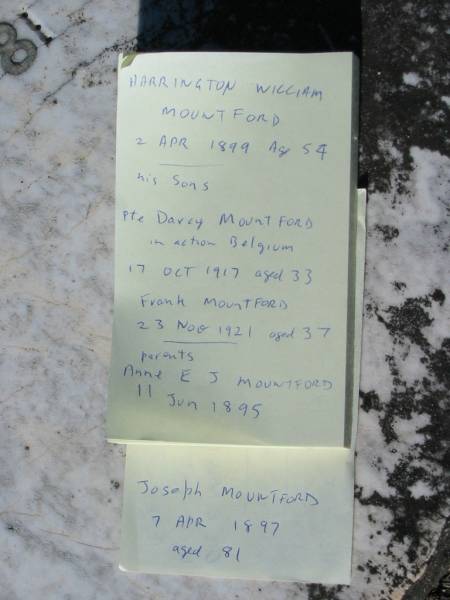 81
HARRINGTON WILLIAM
MOUNTFORD
2 APR 1899 Age 54
his Sons
Pte Darcy MOUNTFORD
in action Belgium
17 OCT 1917 aged 33
Frank MOUNTFORD
23 Nov 1921 aged 37
parents
Anne E J MOUNTFORD
11 Jun 1895
Joseph MOUNTFORD
7 APR 1897
aged 81